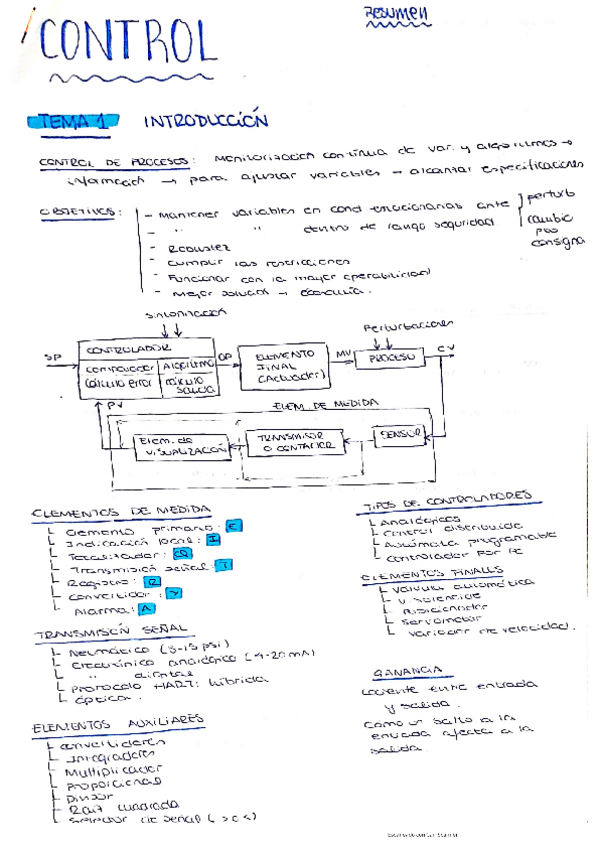 Resumen
CONTROL
TEMA 1 INTRODUCCIÓN
CONTROL DE PROCESOS: Monitorización continua de var. y algoritmos →
información → para ajustar variables → alcanzar especificaciones
OBJETIVOS:
- Mantener variables en cond. estacionarias ante
perturb
cambio
pto
consigna
- " " dentro de rango seguridad
- Robustez
- Cumplir las restricciones
- Funcionar con la mayor operabilidad
- Mejor solución → economía.
Sintonización
SP
CONTROLADOR
comparador
cálculo error
Algoritmo
cálculo
salida
OP
ELEMENTO
FINAL
(Actuador)
MV
Perturbaciones
PROCESO
CV
PV
ELEM. DE MEDIDA
Elem. de
visualización
TRANSMISOR
SENSOR
ELEMENTOS DE MEDIDA
Elemento primario: E
Indicación local: I
Totalizador: Q
Transmisión señal: T
Registro: R
Convertidor: Y
Alarma: A
TRANSMISIÓN SEÑAL
Neumático (3-15 psi)
Electrónico analógico (4-20 mA)
" digital
Protocolo HART: híbrida
óptico.
ELEMENTOS AUXILIARES
Convertidores
Integradores
Multiplicador
Proporcional
Divisor
Raíz cuadrada
Selector de señal (> o <)
TIPOS DE CONTROLADORES
Analógicos
Control distribuido
Autómata programable
Controlador por PC
ELEMENTOS FINALES
Válvula automática
V. solenoide
Posicionador
Servomotor
Variador de velocidad.
GANANCIA
Cociente entre entrada
y salida.
Como un salto a la
entrada afecta a la
salida.
Escaneado con CamScanner